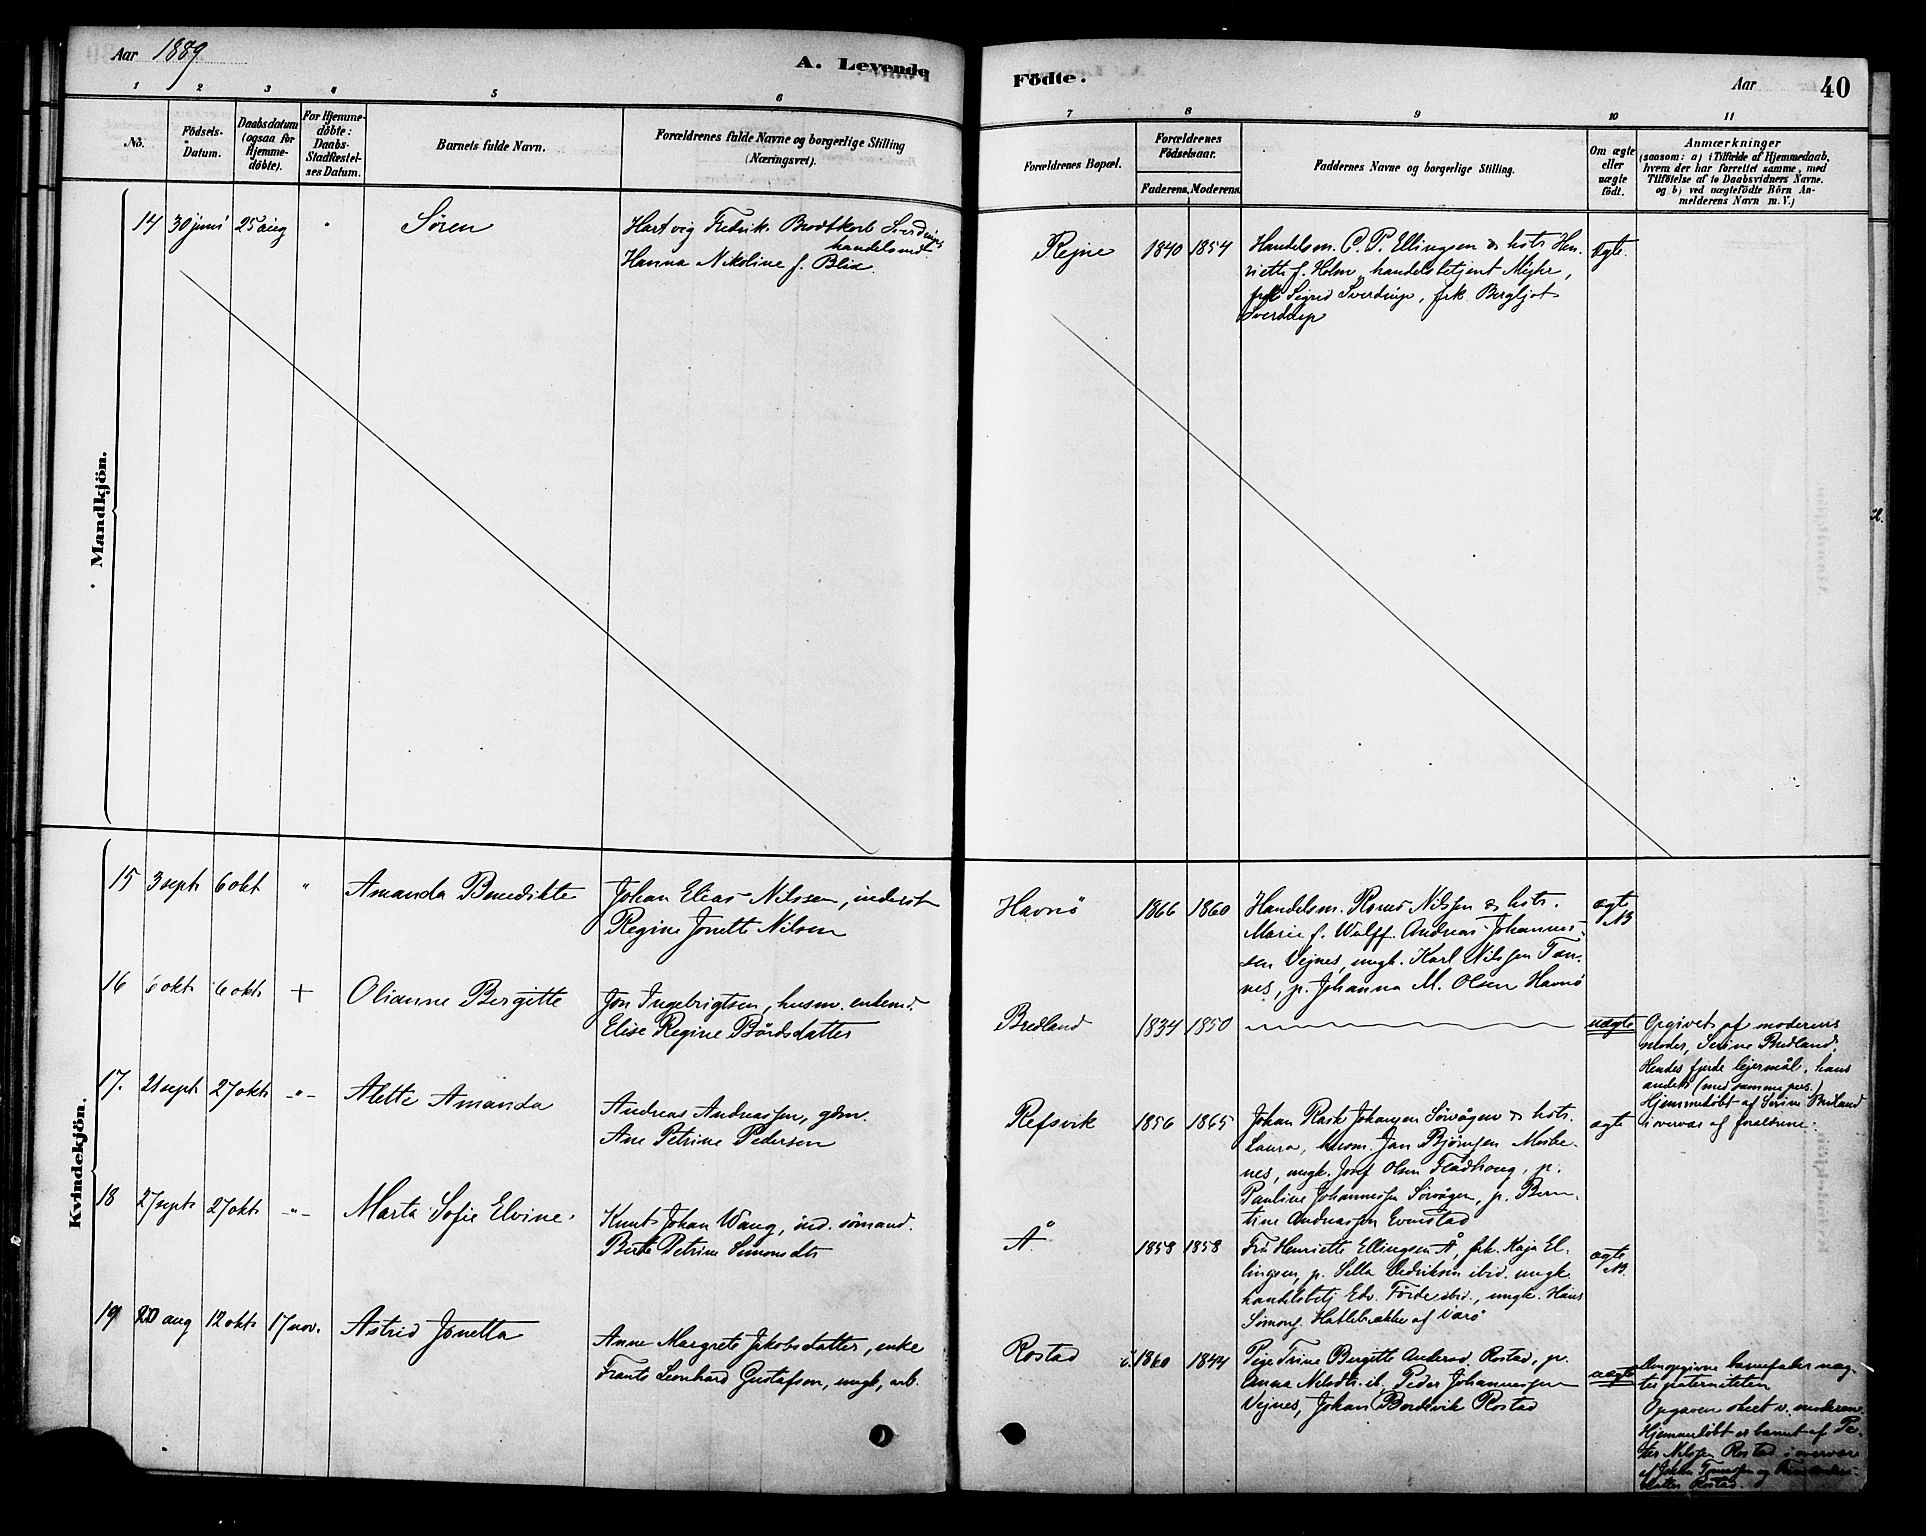 Aar 1889
A. Levende
Födte.
Aar
40
1 2 3 4 5 6
7 8 9 10 11
No.
Födsels-
Datum.
Daabsdatum
(ogsaa for
Hjemme-
döbte).
For Hjemme-
döbte:
Daabs-
Stadfæstel-
ses Datum.
Barnets fulde Navn.
Forældrenes fulde Navne og borgerlige Stilling
(Næringsvei).
Forældrenes Bopæl.
Forældrenes
Födselsaar.
Faderens. Moderens.
Faddernes Navne og borgerlige Stilling.
Om ægte
eller
uægte
födt.
Anmærkninger
(saasom: a) i Tilfælde af Hjemmedaab,
hvem der har forrettet samme, med
Tilföielse af to Daabsvidners Navne.
og b) ved uægtefödte Börn An-
melderens Navn m. V.)
Mandkjön.
14 30 juni 25 aug " Søren
Hartvig Fredrik Brodtkorb Sverdrup
handelsmd
Hanna Nikoline f. Blix
Rejne 1840 1854
Handelsm. C. P. Ellingsen & hots Hen-
riette f. Holm, handelsbetjent
frk Sigrid Sverdrup, frk. Bergljot
Sverdrup
ægte.
Kvindekjön.
15 3 sept 6 okt " Amanda Benedikte
Johan Elias Nilssen, inderst
Regine Jonette Nilsen
Havnø 1866 1860
Handelsm. Nilssen & hots.
Marie f. Wulff. Andreas Johannes-
sen Vejnes, ungk. Karl Nilssen Tan-
nes, p. Johanna M. Olsen Havnø
ægte
NB
16 6 okt 6 okt + Olianne Bergitte
Jon Ingebrigtsen, husm. enkemd.
Elise Regine Bårdsdatter
Bredland 1834 1850
uægte
Opgivet af moderens
moder, Serine Bredland.
Hendes fjerde lejermål, hans
andet (med samme pers.)
Hjemmedøbt af Serine Bredland
i overvær af forældrene.
17. 21 sept 27 okt -"- Alette Amanda
Andreas Andreassen, gdm.
Ane Petrine Pedersen
Refsvik 1856 1865
Johan Rask Johansen Sørvågen & hots.
Laura, husm. Jan Bjørnsen Moske-
nes, ungk. Josef Olsen Fladhaug, p.
Pauline Johannessen Sørvågen, p. Bern-
tine Andreassen Evenstad
ægte
18 27 sept 27 okt -"- Marta Sofie Elvine.
Knut Johan Wang, ind. sømand.
Berte Petrine Simonsdtr
Å. 1858 1858
Fru Henriette Ellingsen Å, frk. Kaja El-
lingsen, p. Sella Dedriksen ibid. ungk.
handelsbetj Edv. Førde ibid., ungk. Hans
Simons. Hatlebakke af Værø
ægte
NB.
19 20 aug 12 okt 17 nov. Astrid Jonetta
Anne Margrete Jakobsdatter, enke
Frants Leonhard Gustafson, ungk, arb.
Rostad 1860 1844
Pige Trine Bergitte Andersd. Rostad, p.
Anna Nilsdtr. ib. Peder Johannessen
Vejnes, Johan Bordevik Rostad
uægte
Den opgivne barnefader næg-
ter paterniteten
Opgaven skeet v. moderen.
Hjemmedøbt er barnet af Pe-
ter Nilssen Rostad i overvær
af
datter Rostad.